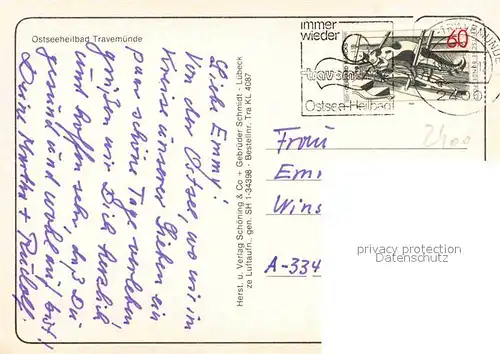 Ostseeheilbad Travemünde
Liebe Emmy!
Von der Ostsee, wo wir im
Kreise unserer Lieben ein
paar schöne Tage verleben
grüßen wir Dich herzlich
und hoffen sehr, daß Du
gesund und wohlauf bist!
Deine Martha + Rudolf.
Herst. u. Verlag Schöning & Co + Gebrüder Schmidt - Lübeck
ze Luftaufn. gen. SH 1-34398 - Bestellnr. Tra KL 4087
immer
wieder
travemünde
Ostsee-Heilbad
60
2400
Frau
Em
Wins
A-334
privacy protection
www.ansichtskarten-center.de